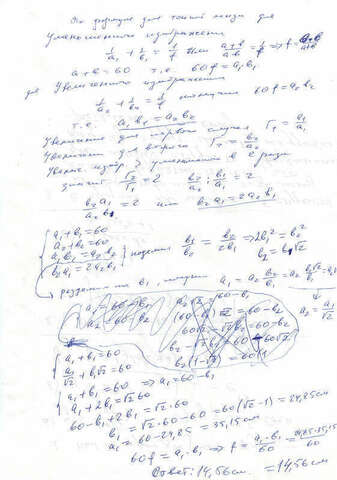 По формуле для тонкой линзы для
уменьшенного изображения
1/a₁ + 1/b₁ = 1/f или (a+b)/(a·b) = 1/f ⇒ f = ab/(a+b)
a+b = 60 т.е. 60f = a₁b₁
для увеличенного изображения
1/a₂ + 1/b₂ = 1/f 60f = a₂b₂
т.е. a₁b₁ = a₂b₂
Увеличение для первого случая Г₁ = b₁/a₁
Увеличение для второго Г₂ = b₂/a₂
Увелич. изобр > уменьшенного в 2 раза
значит Г₂/Г₁ = 2 b₂/a₂ : b₁/a₁ = 2
b₂a₁/a₂b₁ = 2 или b₂a₁ = 2a₂b₁
a₁+b₁ = 60
a₂+b₂ = 60
a₁b₁ = a₂b₂
b₂a₁ = 2a₂b₁ поделим b₁/b₂ = b₂/2b₁ ⇒ 2b₁² = b₂²
b₂ = b₁√2
разделим на b₁, a₁ = a₂ b₂/b₁ = a₂ b₁√2/b₁ = a₂√2
a₂ = a₁/√2
a₁ + b₁ = 60
a₁/√2 + b₁√2 = 60
a₁ + b₁ = 60 ⇒ a₁ = 60 - b₁
a₁ + 2b₁ = √2·60
60 - b₁ + 2b₁ = √2·60
b₁ = √2·60 - 60 = 60(√2 - 1) = 24,85см
a₁ = 60 - 24,85 = 35,15см
60f = a₁·b₁ ⇒ f = a₁·b₁/60 = 24,85·35,15/60
Ответ: 14,56см. = 14,56см